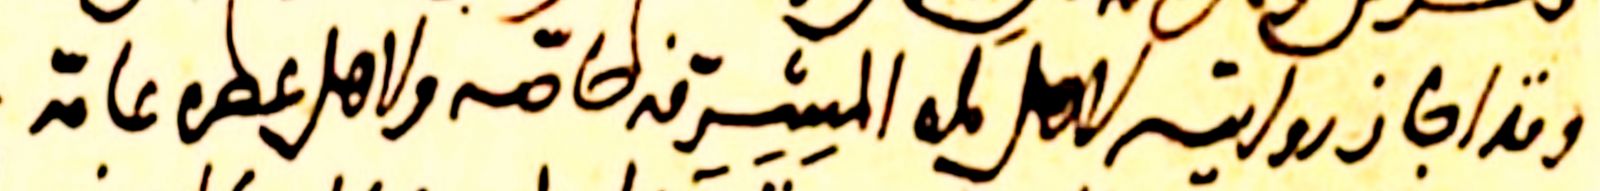 وقد اجاز روايته لاهل مكه المشرفه خاصه ولاهل عطره عامة